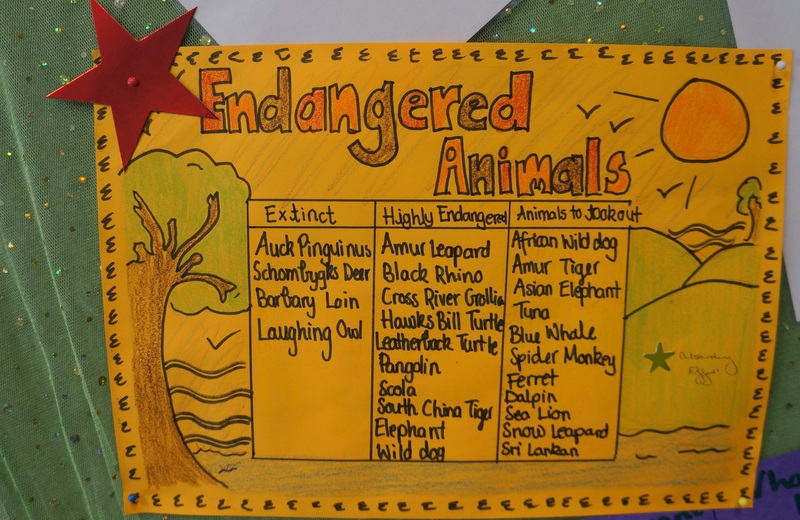 Endangered
Animals
Extinct
Auck Pinguinus
Schombygks Deer
Barbary Loin
Laughing Owl
Highly Endangered
Amur Leopard
Black Rhino
Cross River Grollia
Hawks Bill Turtle
Leatherback Turtle
Pangolin
Scola
South China Tiger
Elephant
Wild dog
Animals to lookout
African Wild dog
Amur Tiger
Asian Elephant
Tuna
Blue Whale
Spider Monkey
Ferret
Dalpin
Sea Lion
Snow Leapard
Sri Lankan